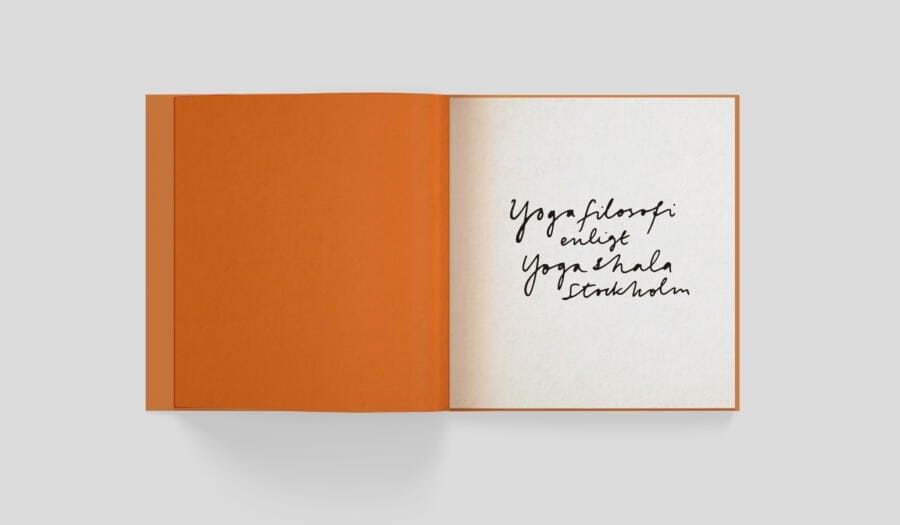 Yogafilosofi
enligt
Yogashala
Stockholm